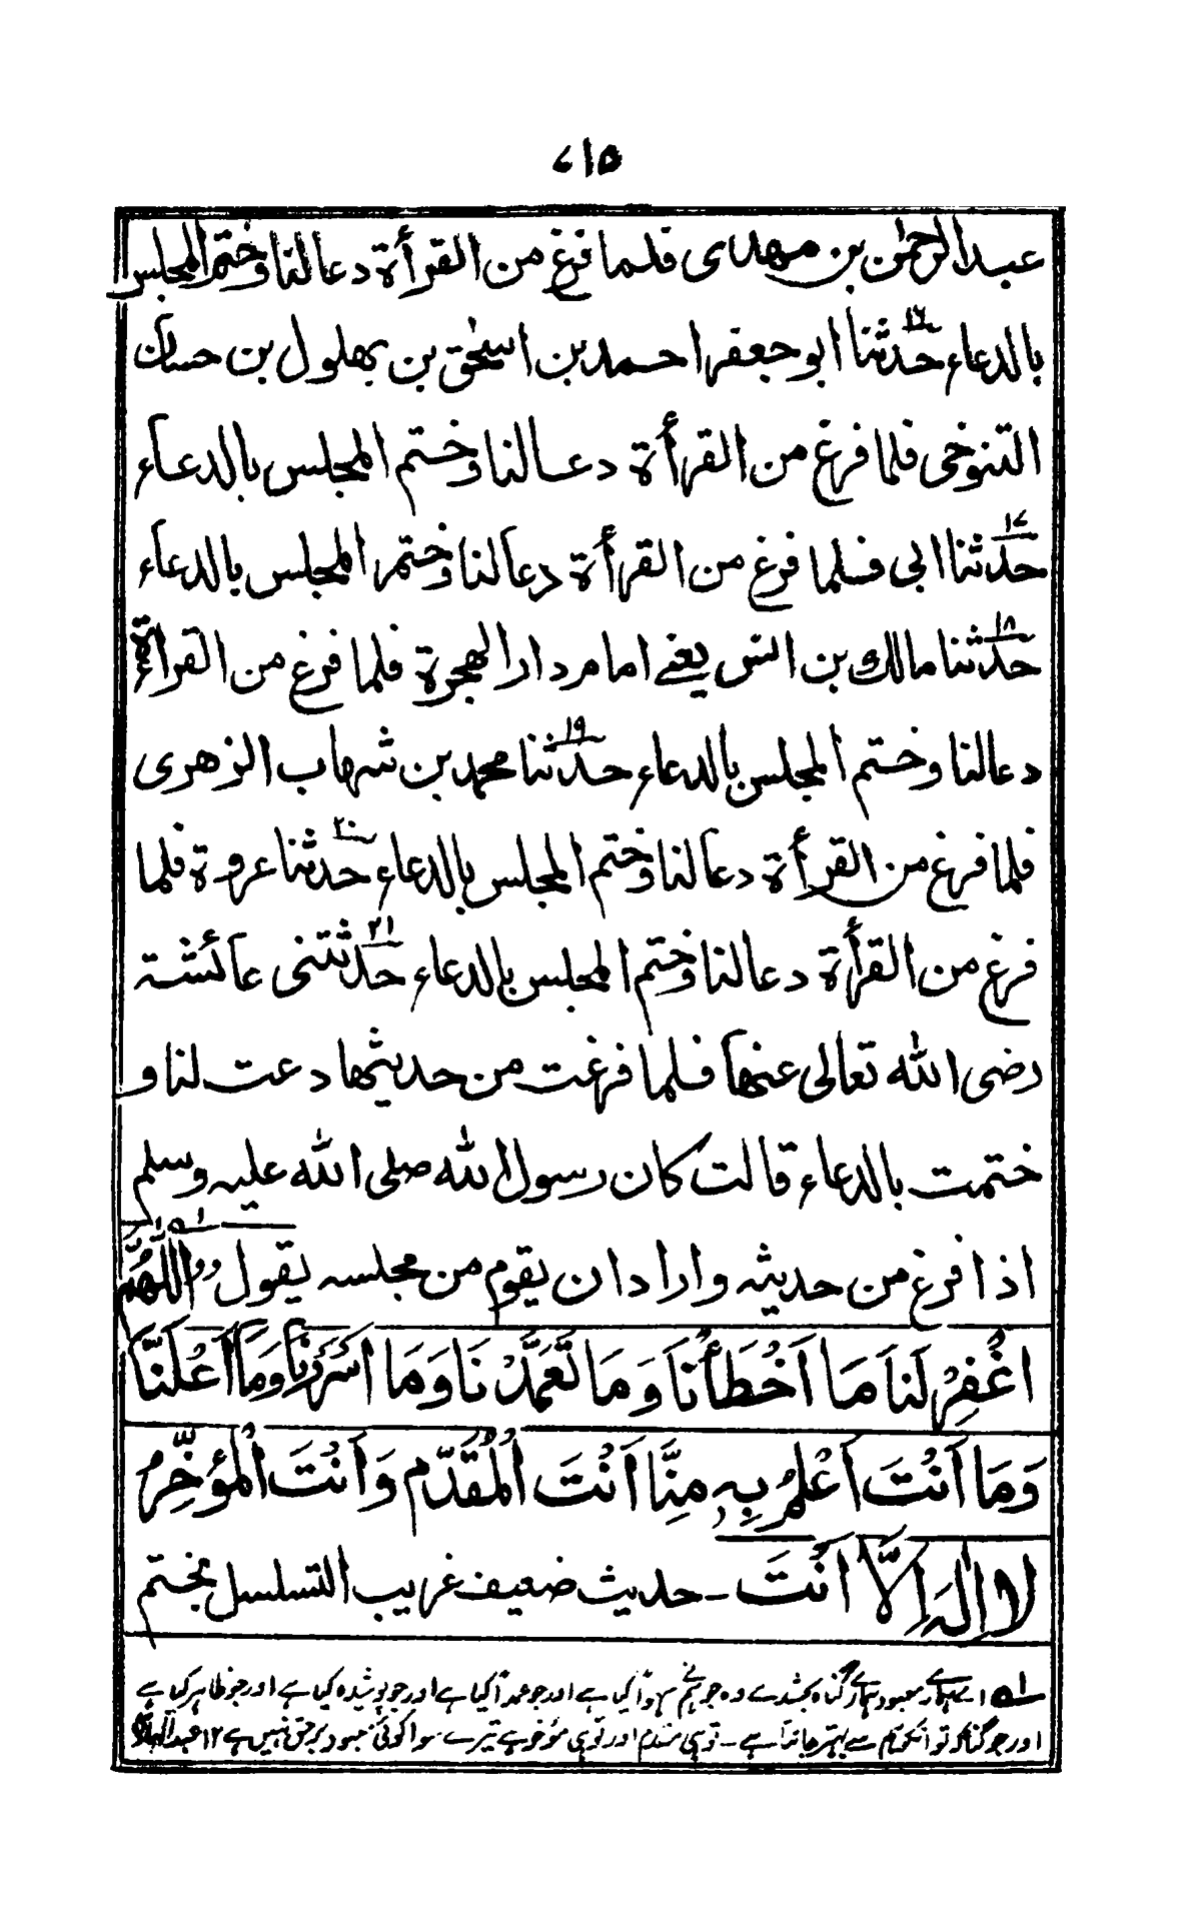 ۷۱۵
عبدالرحمٰن بن مهدی فلما فرغ من القرأة دعا لنا وختم المجلس
بالدعاء حدثنا۱۶ ابو جعفر احمد بن اسحٰق بن بهلول بن حسان
التنوخی فلما فرغ من القرأة دعا لنا وختم المجلس بالدعاء
حدثنا۱۷ ابی فلما فرغ من القرأة دعا لنا وختم المجلس بالدعاء
حدثنا۱۸ مالك بن انس یعنے امام دار الهجرة فلما فرغ من القرأة
دعا لنا وختم المجلس بالدعاء حدثنا۱۹ محمد بن شهاب الزهری
فلما فرغ من القرأة دعا لنا وختم المجلس بالدعاء حدثنا۲۰ عروة فلما
فرغ من القرأة دعا لنا وختم المجلس بالدعاء حدثتنی۲۱ عائشة
رضی الله تعالی عنها فلما فرغت من حدیثها دعت لنا و
ختمت بالدعاء قالت کان رسول الله صلی الله علیه وسلم
اذا فرغ من حدیثه واراد ان یقوم من مجلسه یقول "اللّٰهُمَّ۱ہ
اغْفِرْ لَنَا مَا اَخْطَأْنَا وَمَا تَعَمَّدْنَا وَمَا اَسْرَرْنَا وَمَا اَعْلَنَّا
وَمَا اَنْتَ اَعْلَمُ بِهٖ مِنَّا اَنْتَ الْمُقَدِّمُ وَاَنْتَ الْمُؤَخِّرُ
لَا اِلٰهَ اِلَّا اَنْتَ - حدیث ضعیف غریب التسلسل بختم
۱ہ اے ہمارے معبود ہمارے گناہ بخشدے وہ جو ہم نے سہواً کیا ہے اور جو عمداً کیا ہے اور جو پوشیدہ کیا ہے اور جو ظاہر کیا ہے
اور جو گناہ کو تو انکو ہم سے بہتر جانتا ہے - تو ہی مقدم اور تو ہی مؤخر ہے تیرے سوا کوئی معبود برحق نہیں ہے ۱۲